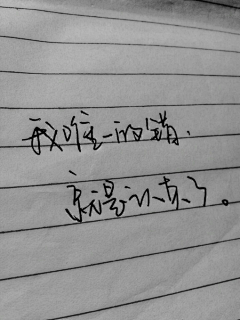 我唯一的错,
就是认真了。